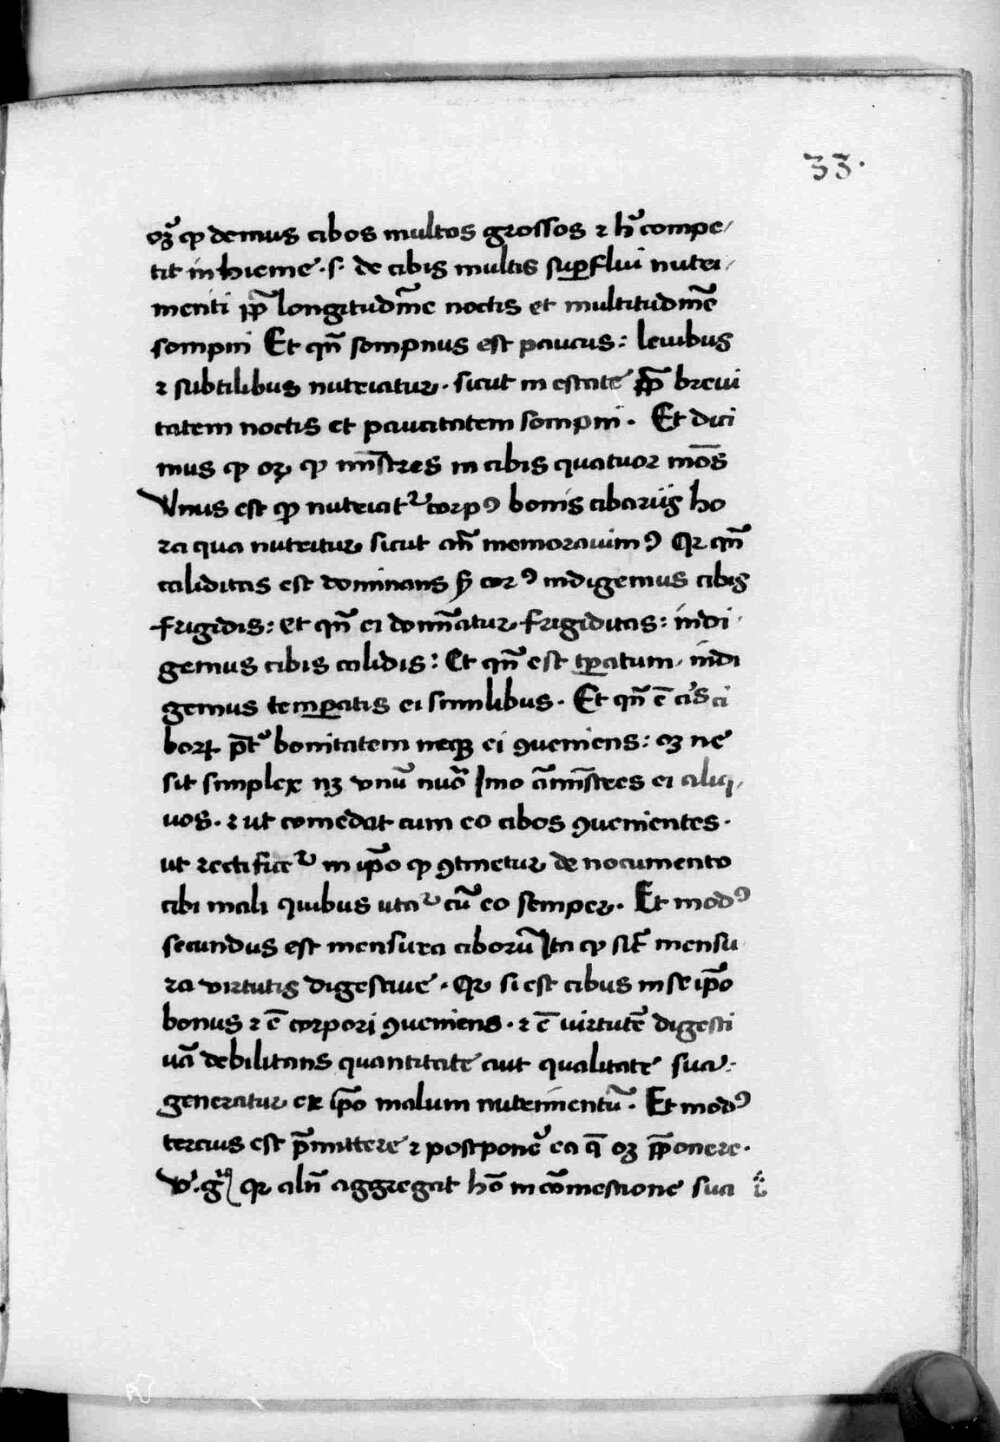 33.
oꝫ ꝙ demus cibos multos grossos ⁊ h̃ compe/
tit in hieme .s. de cibis multis suꝑflui nutri/
menti ꝓp̃ longitudĩne noctis et multitudĩne
sompni Et qñ sompnus est paucus: leuibus
⁊ subtilibus nutriatur. sicut in estate ꝓp̃ breui
tatem noctis et paucitatem sompni. Et dici
mus ꝙ oꝫ ꝙ mĩstres in cibis quatuor mõs
Vnus est ꝙ nutriat᷑ corpꝰ bonis cibariis ho
ra qua nutritur sicut añ memorauimꝰ Qꝛ qñ
caliditas est dominans ĩ corꝰ indigemus cibis
frigidis: et qñ ei domĩatur frigiditas: indi
gemus cibis calidis: Et qñ est tꝑatum, indi
gemus temꝑatis ei similibus. Et qñ ẽ cis ci
boꝝ ꝓt̃ bonitatem neqꝫ ei ꝯueniens: oꝫ ne
sit simplex nꝫ vnũ nũo Imo ãmĩstres ei aliq
uos. ⁊ ut comedat cum eo cibos ꝯuenientes.
ut rectificet᷑ in ip̃o ꝙ ꝯtinetur de nocumento
cibi mali quibus uta᷑ cũ eo semper. Et modꝰ
secundus est mensura ciborũ Ita ꝙ sit̃ mensu
ra uirtutis digestiue. Qꝛ si est cibus in se ip̃o
bonus ⁊ ẽ corpori ꝯueniens. ⁊ ẽ uirtutẽ digesti
uã debilitans quantitate aut qualitate sua.
generatur ex ip̃o malum nutrimentũ. Et modꝰ
tercius est p̃mittere ⁊ postponẽ ea q̃ oꝫ p̃ponere.
v̓. g̃ qꝛ aliñ aggregat hõ in cõmestione sua